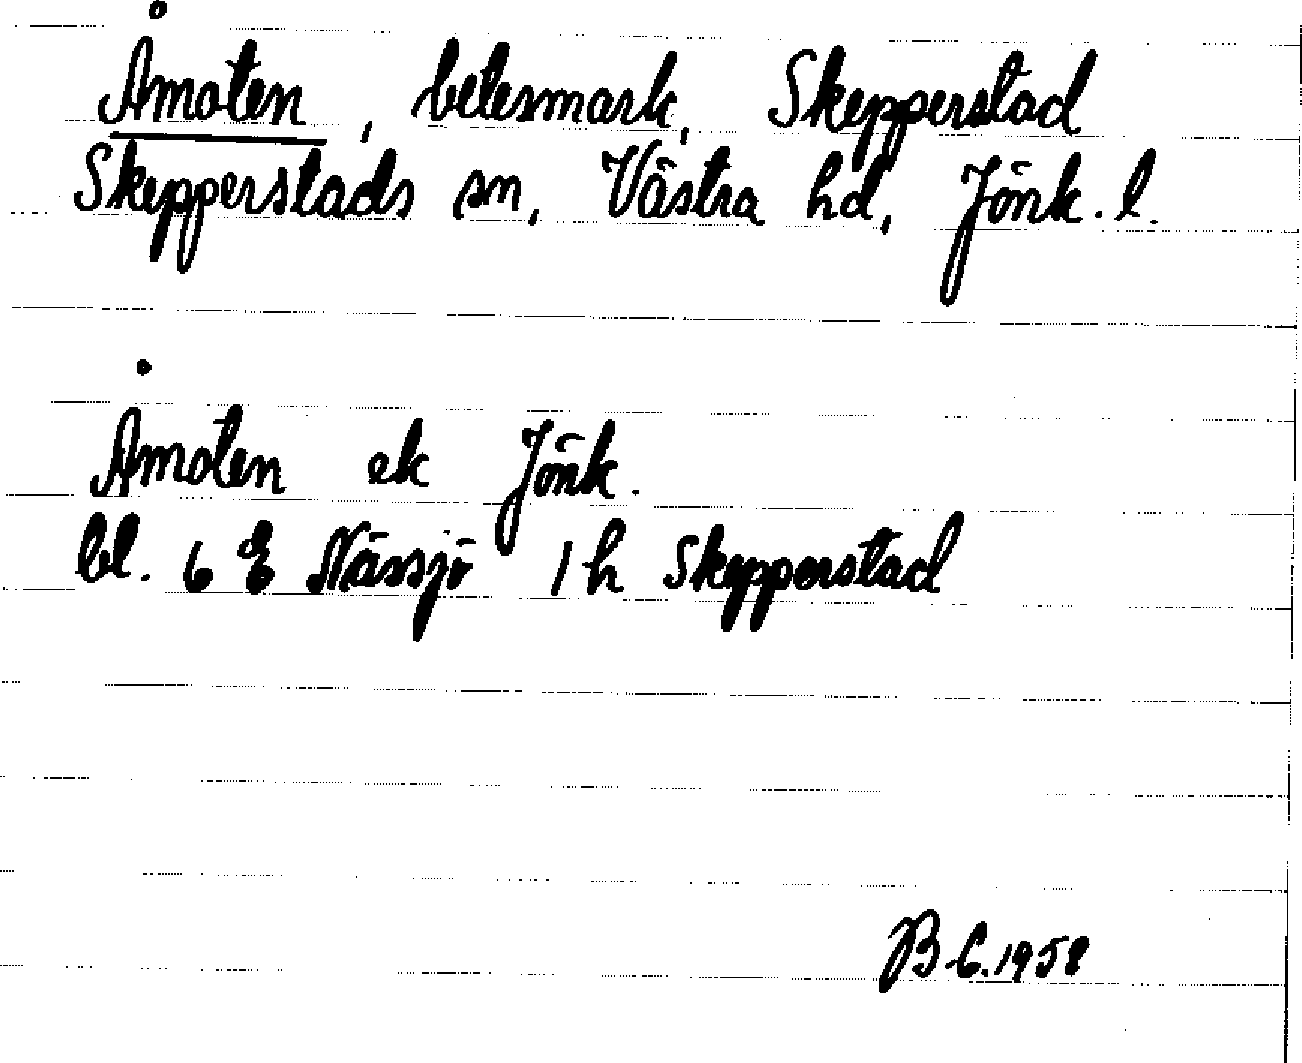 Åmoten, betesmark, Skepperstad
Skepperstads sn, Västra hd, Jönk. l.
Åmoten ek Jönk.
bl. 6 E Nässjö 1 h Skepperstad
B-C. 1958